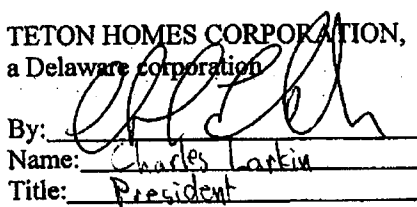 TETON HOMES CORPORATION,
a Delaware corporation
By:
Name: Charles Larkin
Title: President